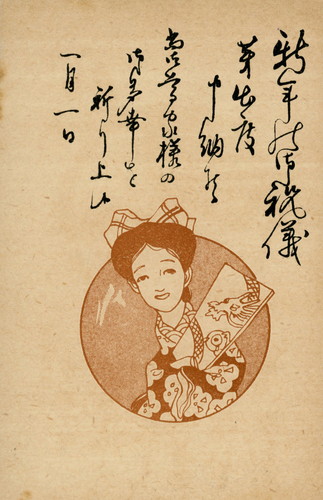 新年の御祝儀
芽出度
申納候
尚御尊家様の
御多幸を
祈り上候
一月一日